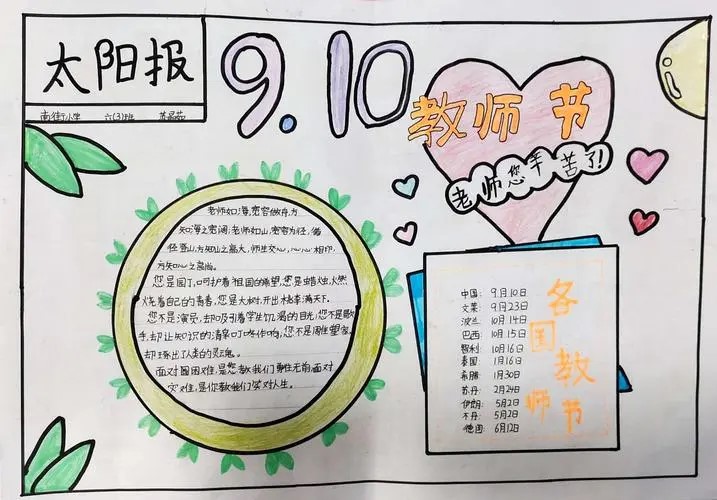 太阳报
南街小学 六(3)班
9.10
教师节
老师您辛苦了!
老师如海,宽容做舟,方
知海之宽阔;老师如山,宽容为径,循
径登山,方知山之高大;师生交心,心心相印,
方知心之高尚。
您是园丁,呵护着祖国的希望,您是蜡烛,燃
烧着自己的青春,您是大树,开出桃李满天下。
您不是演员,却吸引着学生饥渴的目光,您不是歌
手,却让知识的清泉叮咚作响,您不是雕塑家,
却琢出了人类的灵魂。
面对困难,是您教我们勇往无前,面对
灾难,是你教我们笑对人生。
各国教师节
中国: 9月10日
文莱: 9月23日
波兰: 10月14日
巴西: 10月15日
智利: 10月16日
泰国: 1月16日
希腊: 1月30日
苏丹: 2月24日
伊朗: 5月2日
不丹: 5月2日
德国: 6月12日